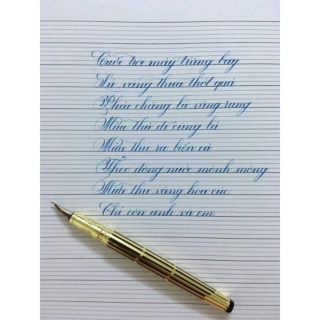 Cuối trời mây trắng bay
Lá vàng thưa thớt quá
Phải chăng lá về rừng
Mùa thu đi cùng lá
Mùa thu ra biển cả
Theo dòng nước mênh mông
Mùa thu vàng hoa cúc
Chỉ còn anh và em